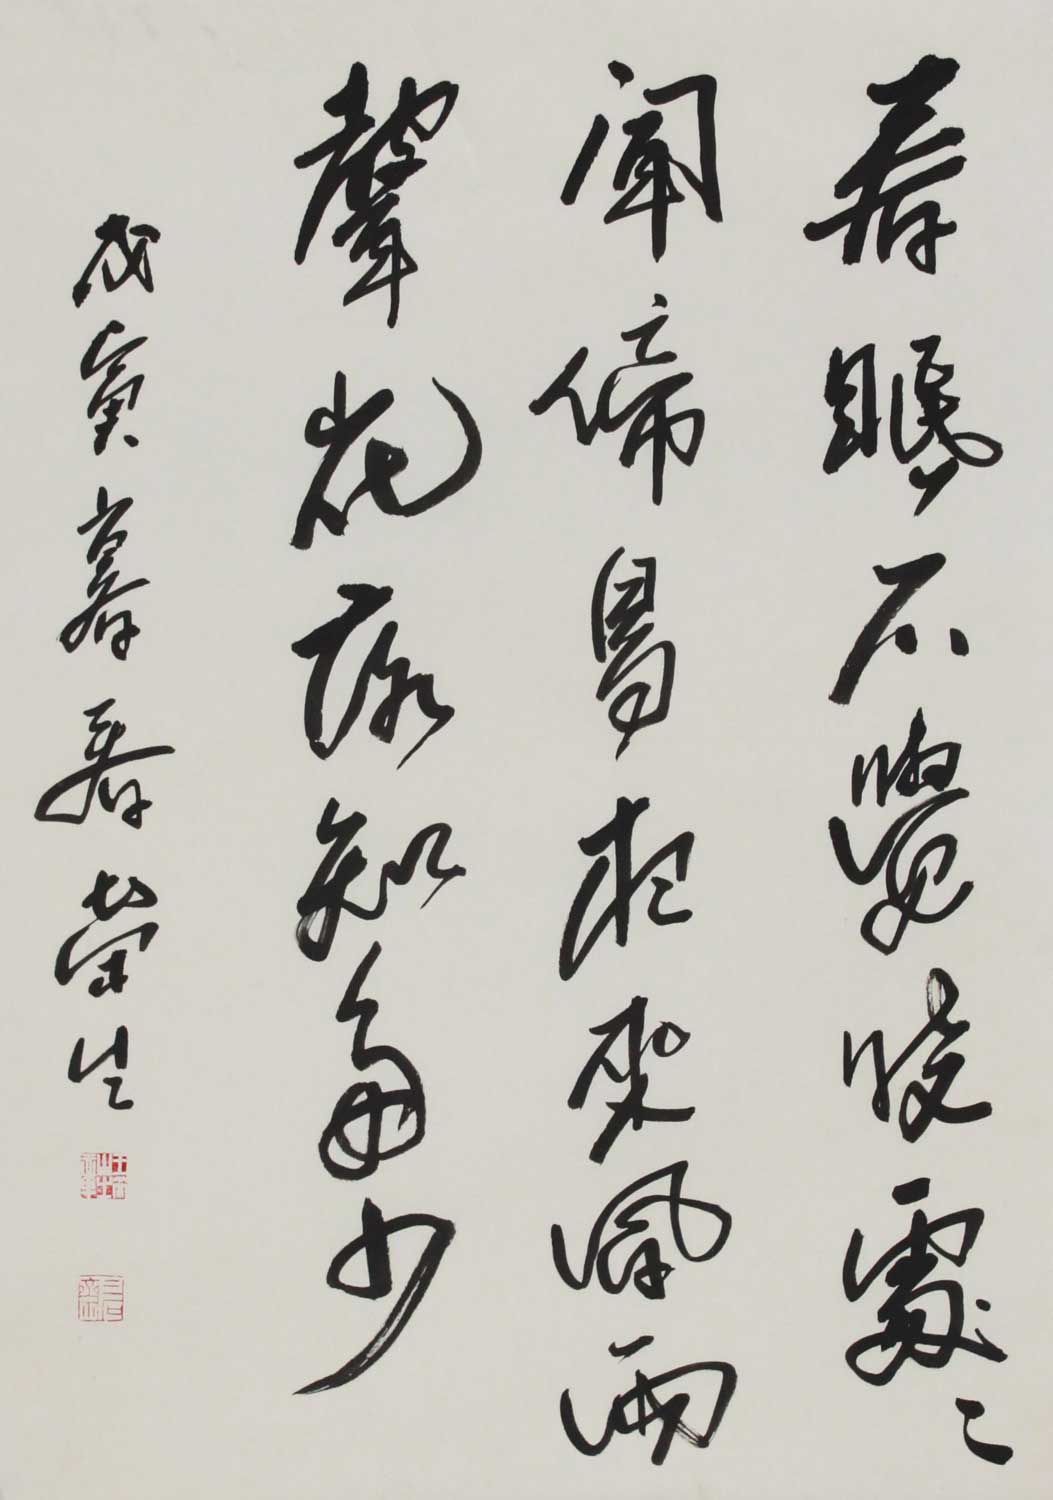 春眠不覺曉處々
聞啼鳥夜來風雨
聲花落知多少
戊寅暮春